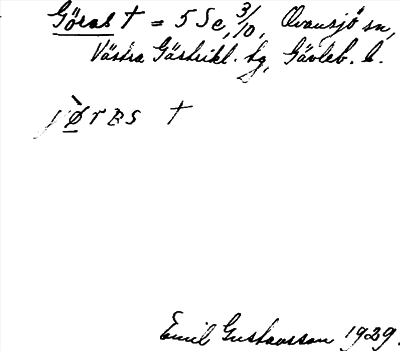 Göras † = 5 Se, 3/10, Ovansjö sn,
Västra Gästrikl. hg, Gävleb. l.
jø̀rᴃs †
Emil Gustavsson 1929.